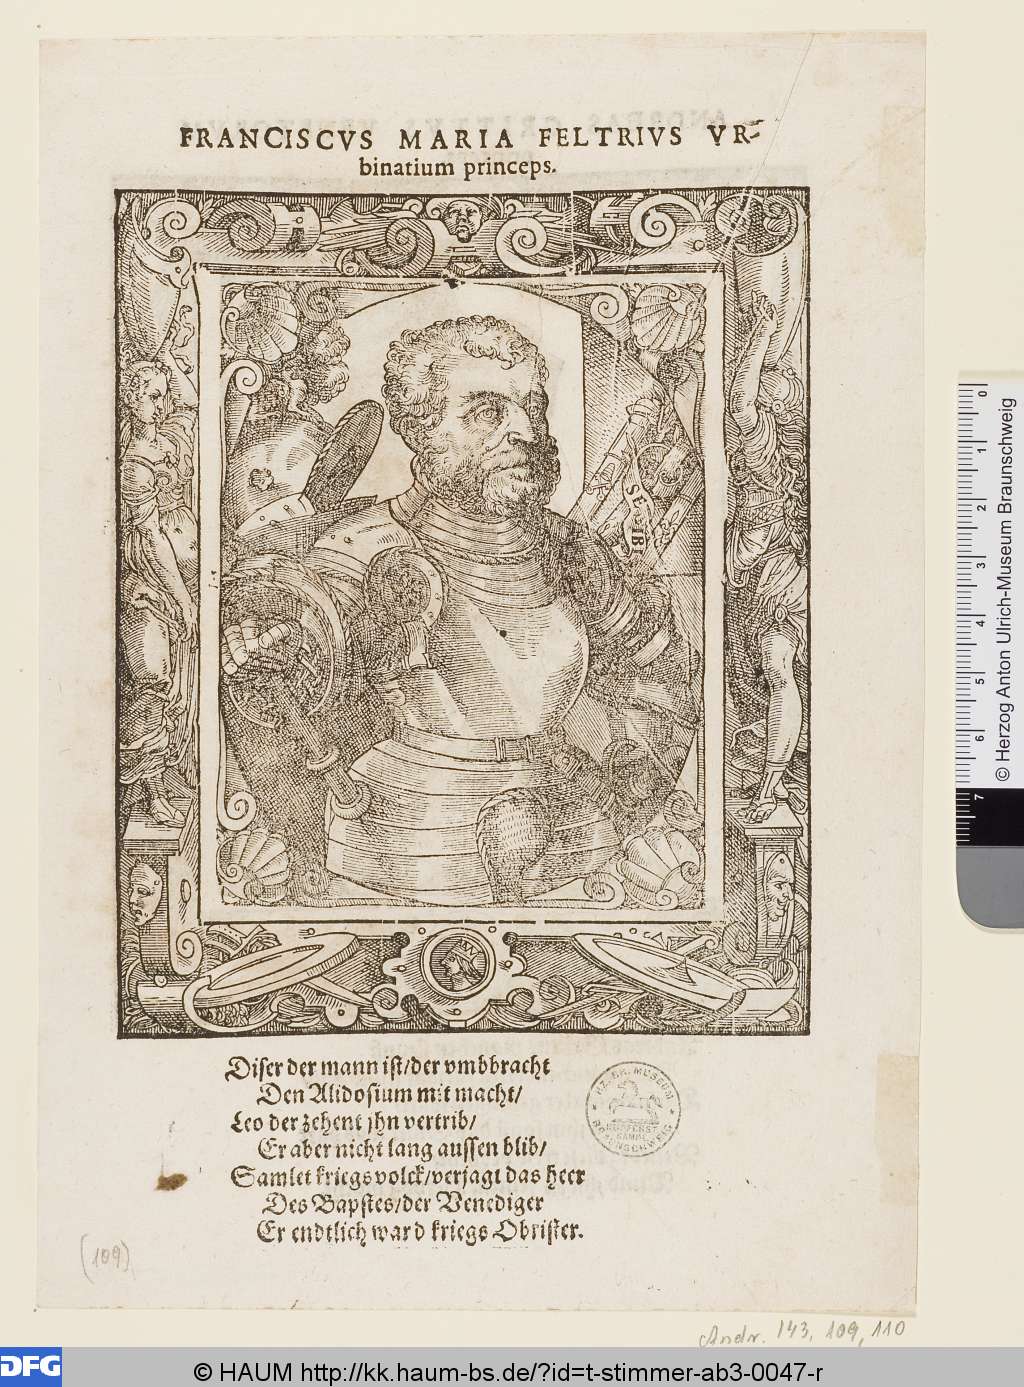 FRANCISCVS MARIA FELTRIVS VR-
binatium princeps.
SE IBI
Diser der mann ist/der vmbbracht
Den Alidosium mit macht/
Leo der zehent jhn vertrib/
Er aber nicht lang aussen blib/
Samlet kriegsvolck/verjagt das heer
Des Bapstes/der Venediger
Er endtlich ward kriegs Obrister.
HZ. BR. MUSEUM
KUPFERST.
SAMML.
BRAUNSCHWEIG
(109)
Andr. 143, 109, 110
0 1 2 3 4 5 6 7
© Herzog Anton Ulrich-Museum Braunschweig
DFG
© HAUM http://kk.haum-bs.de/?id=t-stimmer-ab3-0047-r